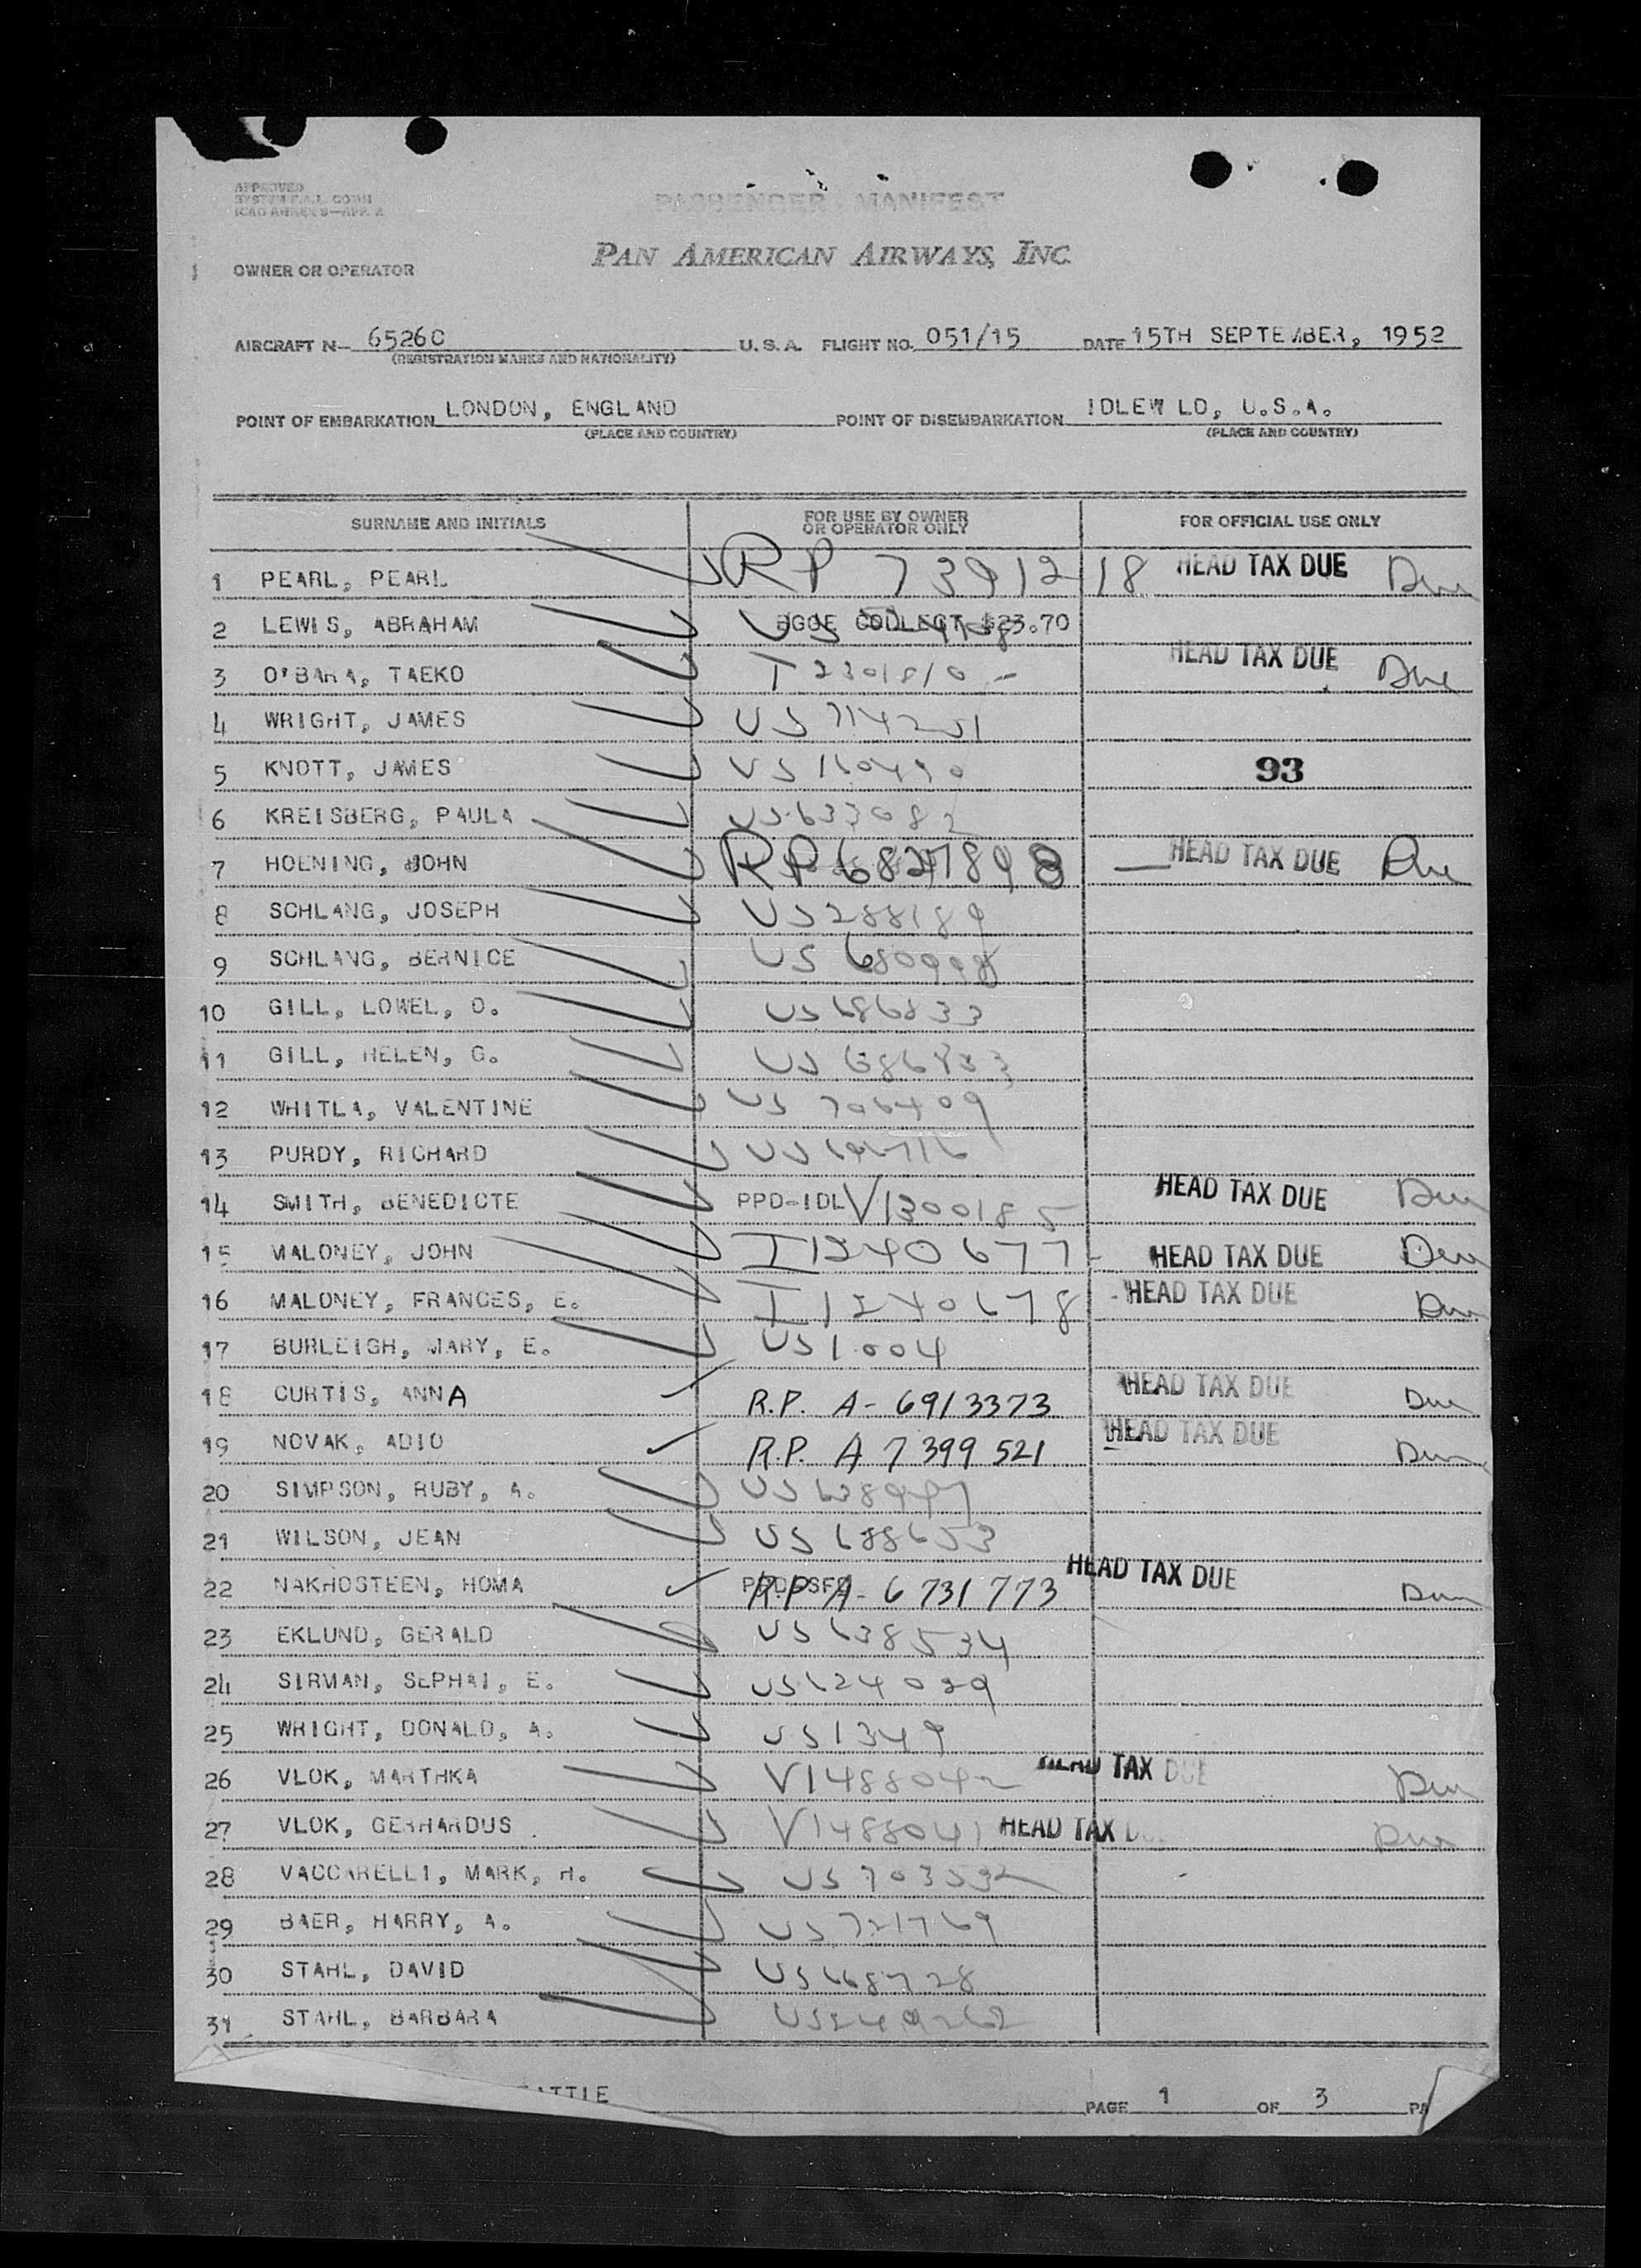 APPROVED
PASSENGER MANIFEST
PAN AMERICAN AIRWAYS, INC.
OWNER OR OPERATOR
AIRCRAFT N— 6526C U.S.A. FLIGHT NO. 051/15 DATE 15TH SEPTEMBER, 1952
(REGISTRATION MARKS AND NATIONALITY)
POINT OF EMBARKATION LONDON, ENGLAND POINT OF DISEMBARKATION IDLEW LD, U.S.A.
(PLACE AND COUNTRY) (PLACE AND COUNTRY)
SURNAME AND INITIALS FOR USE BY OWNER OR OPERATOR ONLY FOR OFFICIAL USE ONLY
1 PEARL, PEARL RP 7391218 HEAD TAX DUE Due
2 LEWIS, ABRAHAM COLLECT $23.70
3 O'BARA, TAEKO T 2301810 HEAD TAX DUE Due
4 WRIGHT, JAMES US 714251
5 KNOTT, JAMES US 160490 93
6 KREISBERG, PAULA US 633082
7 HOENING, JOHN RP 6827898 HEAD TAX DUE Due
8 SCHLANG, JOSEPH US 288189
9 SCHLANG, BERNICE US
10 GILL, LOWEL, O. US 686833
11 GILL, HELEN, G. US 686833
12 WHITLA, VALENTINE US 706409
13 PURDY, RICHARD US
14 SMITH, BENEDICTE PPD-IDL V1300185 HEAD TAX DUE Due
15 MALONEY, JOHN I1240677 HEAD TAX DUE Due
16 MALONEY, FRANCES, E. I1240678 HEAD TAX DUE Due
17 BURLEIGH, MARY, E. US 1004
18 CURTIS, ANNA R.P. A-6913373 HEAD TAX DUE Due
19 NOVAK, ADIO R.P. A 7399521 HEAD TAX DUE Due
20 SIMPSON, RUBY, A. US
21 WILSON, JEAN US 688653
22 NAKHOSTEEN, HOMA R.P. A-6731773 HEAD TAX DUE Due
23 EKLUND, GERALD US 638534
24 SIRMAN, SEPHAI, E. US 624029
25 WRIGHT, DONALD, A. US 1349
26 VLOK, MARTHKA V1488042 HEAD TAX DUE Due
27 VLOK, GERHARDUS V1488041 HEAD TAX Due
28 VACCARELLI, MARK, H. US 703532
29 BAER, HARRY, A. US 721769
30 STAHL, DAVID US 668728
31 STAHL, BARBARA US
PAGE 1 OF 3